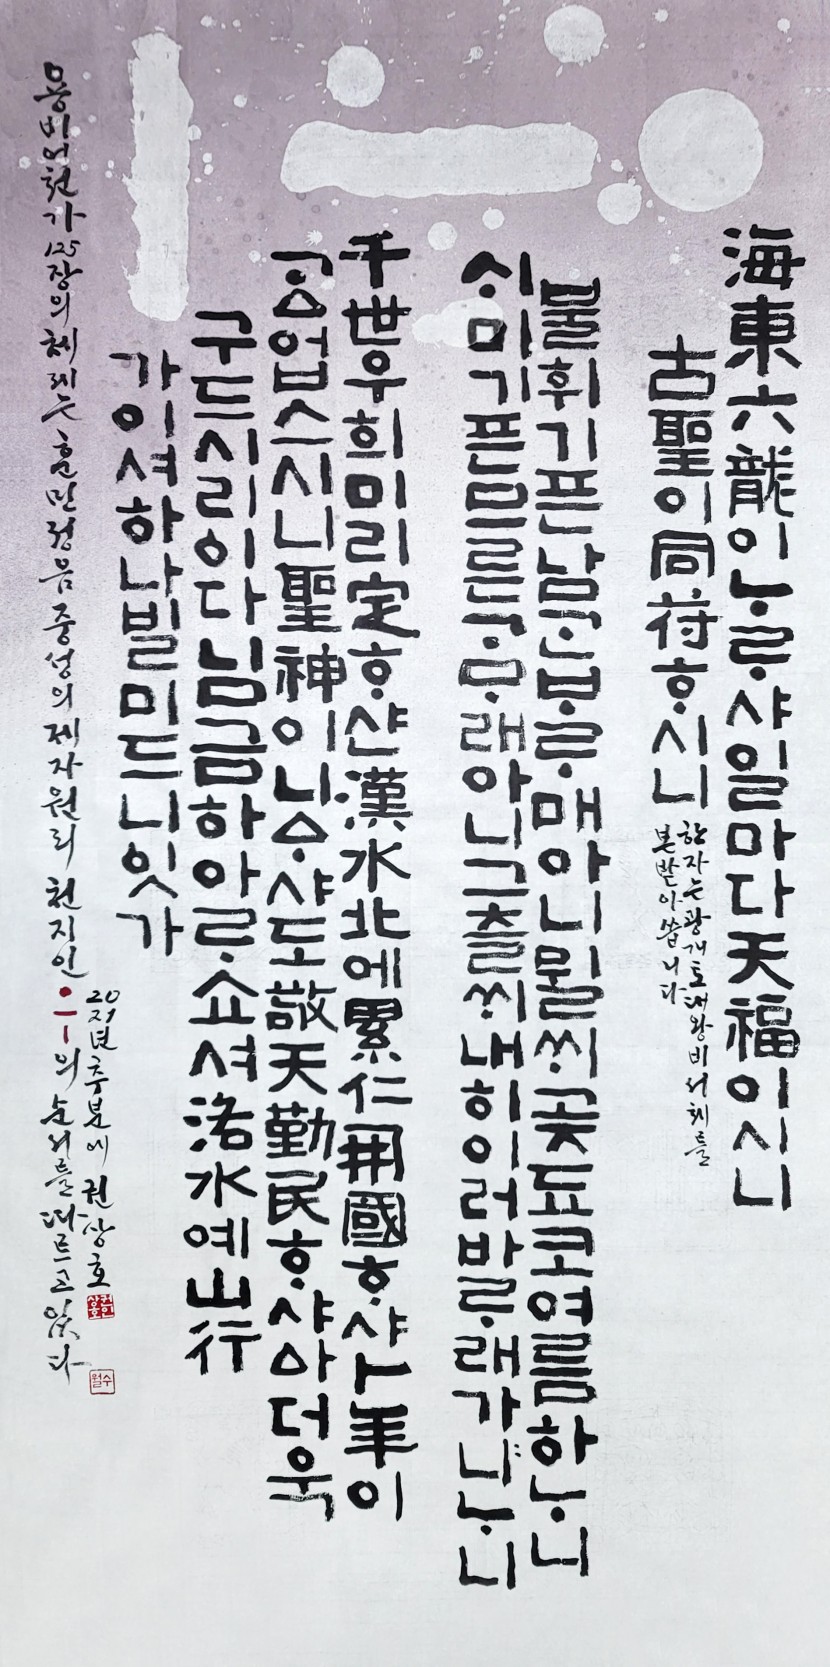 海東六龍이ᄂᆞᄅᆞ샤일마다天福이시니
古聖이同符ᄒᆞ시니
한자는 광개토대왕비 서체를
본받아 씁니다
불휘기픈남ᄀᆞᆫᄇᆞᄅᆞ매아니뮐ᄊᆡ곶됴코여름하ᄂᆞ니
ᄉᆡ미기픈므른ᄀᆞᄆᆞ래아니그츨ᄊᆡ내히이러바ᄅᆞ래가ᄂᆞ니
千世우희미리定ᄒᆞ샨漢水北에累仁開國ᄒᆞ샤卜年이
ᄀᆞᅀᅵ업스시니聖神이니ᅀᆞ샤도敬天勤民ᄒᆞ샤아더욱
구드시리이다님금하아ᄅᆞ쇼셔洛水예山行
가이셔하나빌미드니잇가
용비어천가 125장의 체제는 훈민정음 중성의 제자원리 천지인 ㆍㅡㅣ의 순서를 따르고 있다
2021년 추분에 권상호
수월